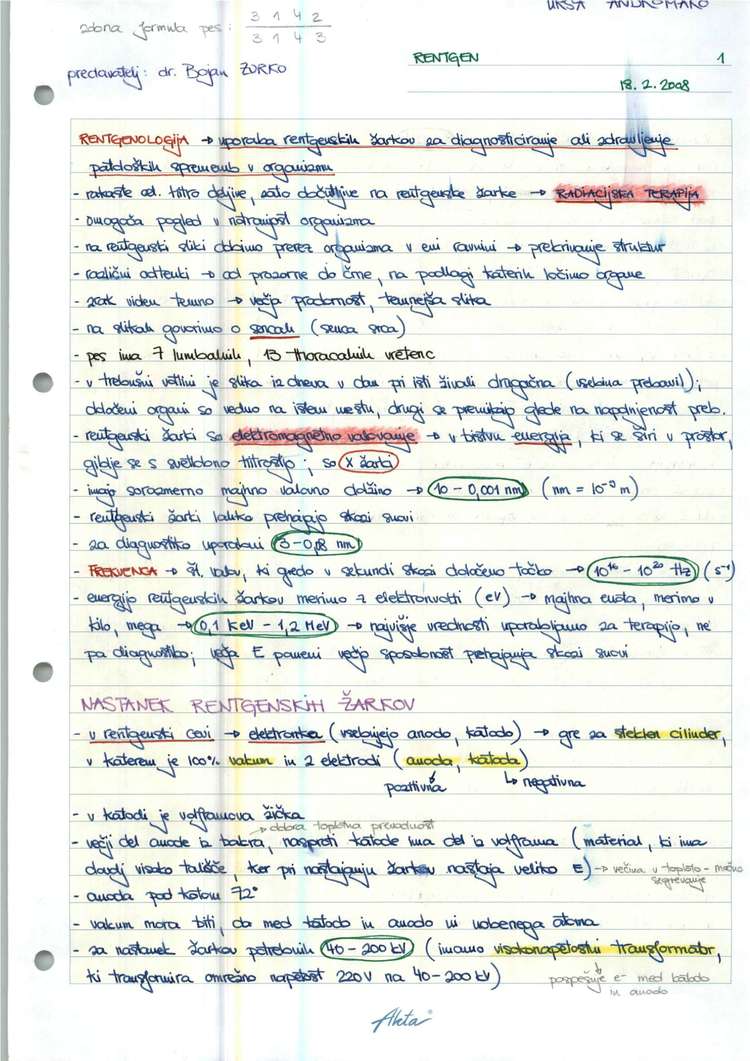 URŠA ANDROMAKO
zobna formula pes: 3 1 4 2
3 1 4 3
predavatelj: dr. Bojan ZORKO
RENTGEN 1
18. 2. 2008
RENTGENOLOGIJA → uporaba rentgenskih žarkov za diagnosticiranje ali zdravljenje
patoloških sprememb v organizmu
- rakaste cel. hitro deljive, zato občutljive na rentgenske žarke → RADIACIJSKA TERAPIJA
- omogoča pogled v notranjost organizma
- na rentgenski sliki dobimo prerez organizma v eni ravnini → prekrivanje struktur
- različni odtenki → od prozorne do črne, na podlagi katerih ločimo organe
- zrak viden temno → večja prodornost, temnejša slika
- na slikah govorimo o sencah (senca srca)
- pes ima 7 lumbalnih, 13 thoracalnih vretenc
- v trebušni votlini je slika iz dneva v dan pri isti živali drugačna (vsebina prebavil);
določeni organi so vedno na istem mestu, drugi se premikajo glede na napolnjenost preb.
- rentgenski žarki so elektromagnetno valovanje → v bistvu energija, ki se širi v prostor,
giblje se s svetlobno hitrostjo; so X žarki
- imajo sorazmerno majhno valovno dolžino → 10 – 0,001 nm (nm = 10⁻⁹ m)
- rentgenski žarki lahko prehajajo skozi snovi
- za diagnostiko uporabni 3 – 0,8 nm
- FREKVENCA → št. valov, ki gredo v sekundi skozi določeno točko → 10¹⁶ – 10²⁰ Hz (s⁻¹)
- energijo rentgenskih žarkov merimo z elektronvolti (eV) → majhna enota, merimo v
kilo, mega → 0,1 KeV – 1,2 MeV → najvišje vrednosti uporabljamo za terapijo, ne
pa diagnostiko; večja E pomeni večjo sposobnost prehajanja skozi snovi
NASTANEK RENTGENSKIH ŽARKOV
- v rentgenski cevi → elektronka (vsebujejo anodo, katodo) → gre za steklen cilinder,
v katerem je 100% vakum in 2 elektrodi (anoda, katoda)
pozitivna negativna
- v katodi je volframova žička
→ dobra toplotna prevodnost
- večji del anode iz bakra, nasproti katode ima del iz volframa (material, ki ima
dovolj visoko tališče, ker pri nastajanju žarkov nastaja veliko E) → večina v toploto - močno
segrevanje
- anoda pod kotom 72°
- vakum mora biti, da med katodo in anodo ni nobenega atoma
- za nastanek žarkov potrebnih 40 – 200 kV (imamo visokonapetostni transformator,
ki transformira omrežno napetost 220 V na 40 – 200 kV)
pospešuje e- med katodo
in anodo
Akta